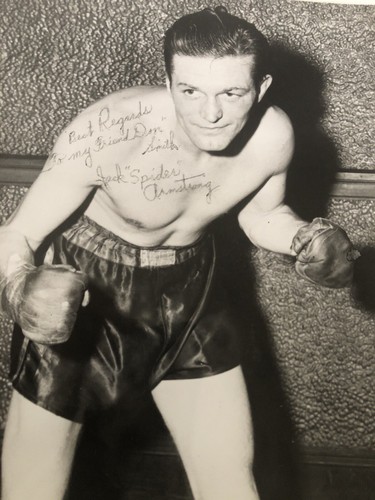 Best Regards
To my Friend Don"
Smith
Jack "Spider"
Armstrong